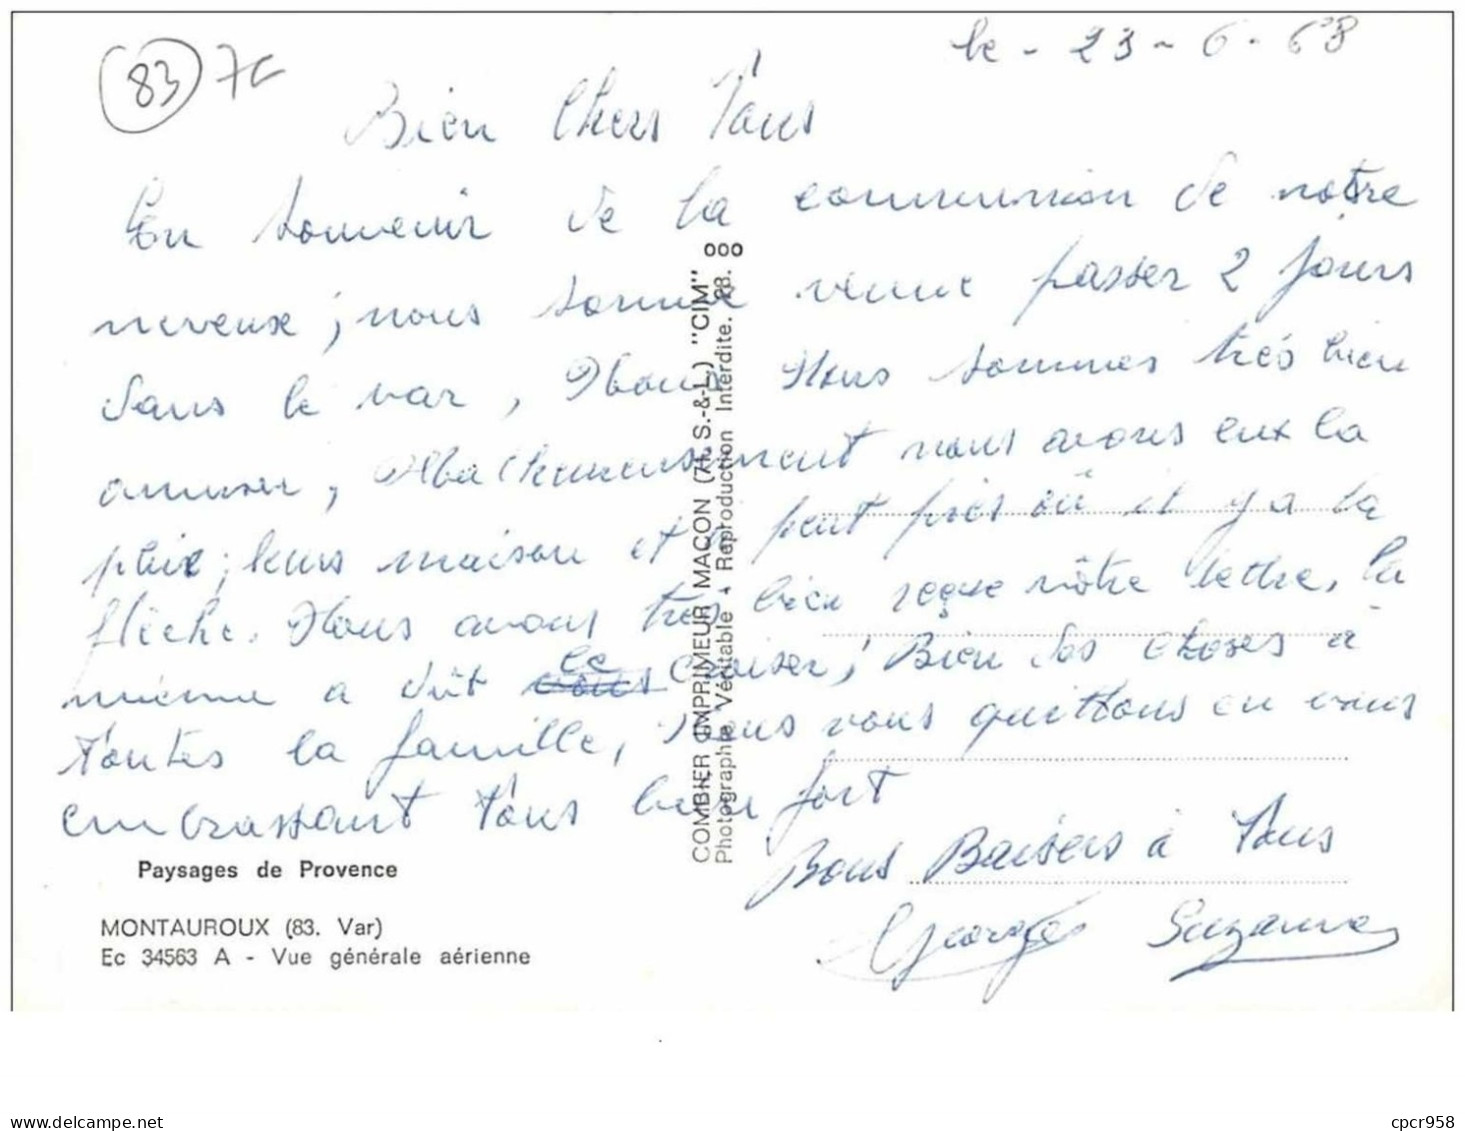 83 7c
le - 23 - 6 - 68
Bien Chers Tous
En souvenir de la communion de notre
neveux, nous somme venue passer 2 jours
dans le var, Nous Nous sommes très bien
amuser, nous avons eux la
pluie, leurs maison et a peut près où il y a la
flèche. Nous avons très bien reçue vôtre lettre, la
mienne a dût ce croiser, Bien des choses à
toutes la famille, Nous vous quittons en vous
embrassant tous bien fort
Bons Baisers à Tous
Georges Suzanne
COMBIER IMPRIMEUR MACON (71. S.-&-L.) "CIM" ooo
Photographie Véritable - Reproduction Interdite. 68.
Paysages de Provence
MONTAUROUX (83. Var)
Ec 34563 A - Vue générale aérienne
cpcr958